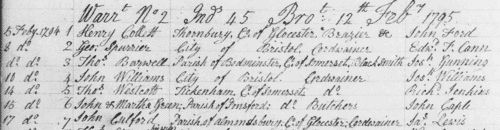 Warr.t No 2 Ind.s 45 Bro.t 12th Feb.y 1795
5 Feby. 1794 1 Henry Collett Thornbury, C.o of Glocester Brazier &c John Ford
8 d.o 2 Geo. Spurrier City of Bristol Cordwainer Edw.d T. Cann
d.o d.o 3 Tho.s Barwell Parish of Bedminster, C.o of Somerset, Black Smith Jos.h Gunning
10 d.o 4 John Williams City of Bristol Cordwainer Jos.h Williams
14 d.o 5 Tho.s Westcott Tickenham, C.o of Somerset d.o Rich.d Jenkins
16 d.o 6 John & Martha Green; Parish of d.o Butchers John Caple
17 d.o 7 John Culford Parish of Almondsbury, C.o of Glocester; Cordwainer Ja.s Lewis